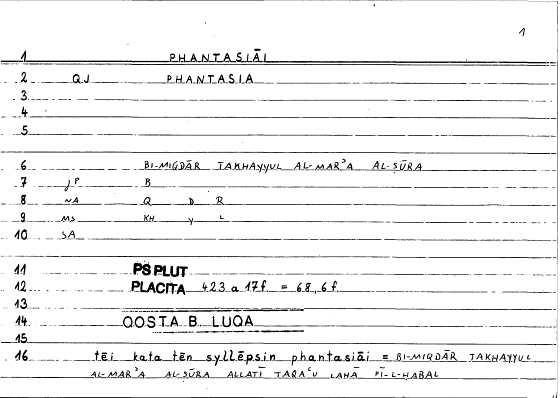 1
1 PHANTASIĀI
2 QJ PHANTASIA
3
4
5
6 BI-MIQDĀR TAKHAYYUL AL-MARʾA AL-ṢŪRA
7 JP B
8 NA Q D R
9 MS KH Y L
10 SA
11 PS PLUT
12 PLACITA 423 a 17f. = 68,6f.
13
14 QOSTA B. LUQA
15
16 tēi kata tēn syllēpsin phantasiāi = BI-MIQDĀR TAKHAYYUL
AL-MARʾA AL-ṢŪRA ALLATĪ TAQAʿU LAHĀ FĪ-L-ḤABAL